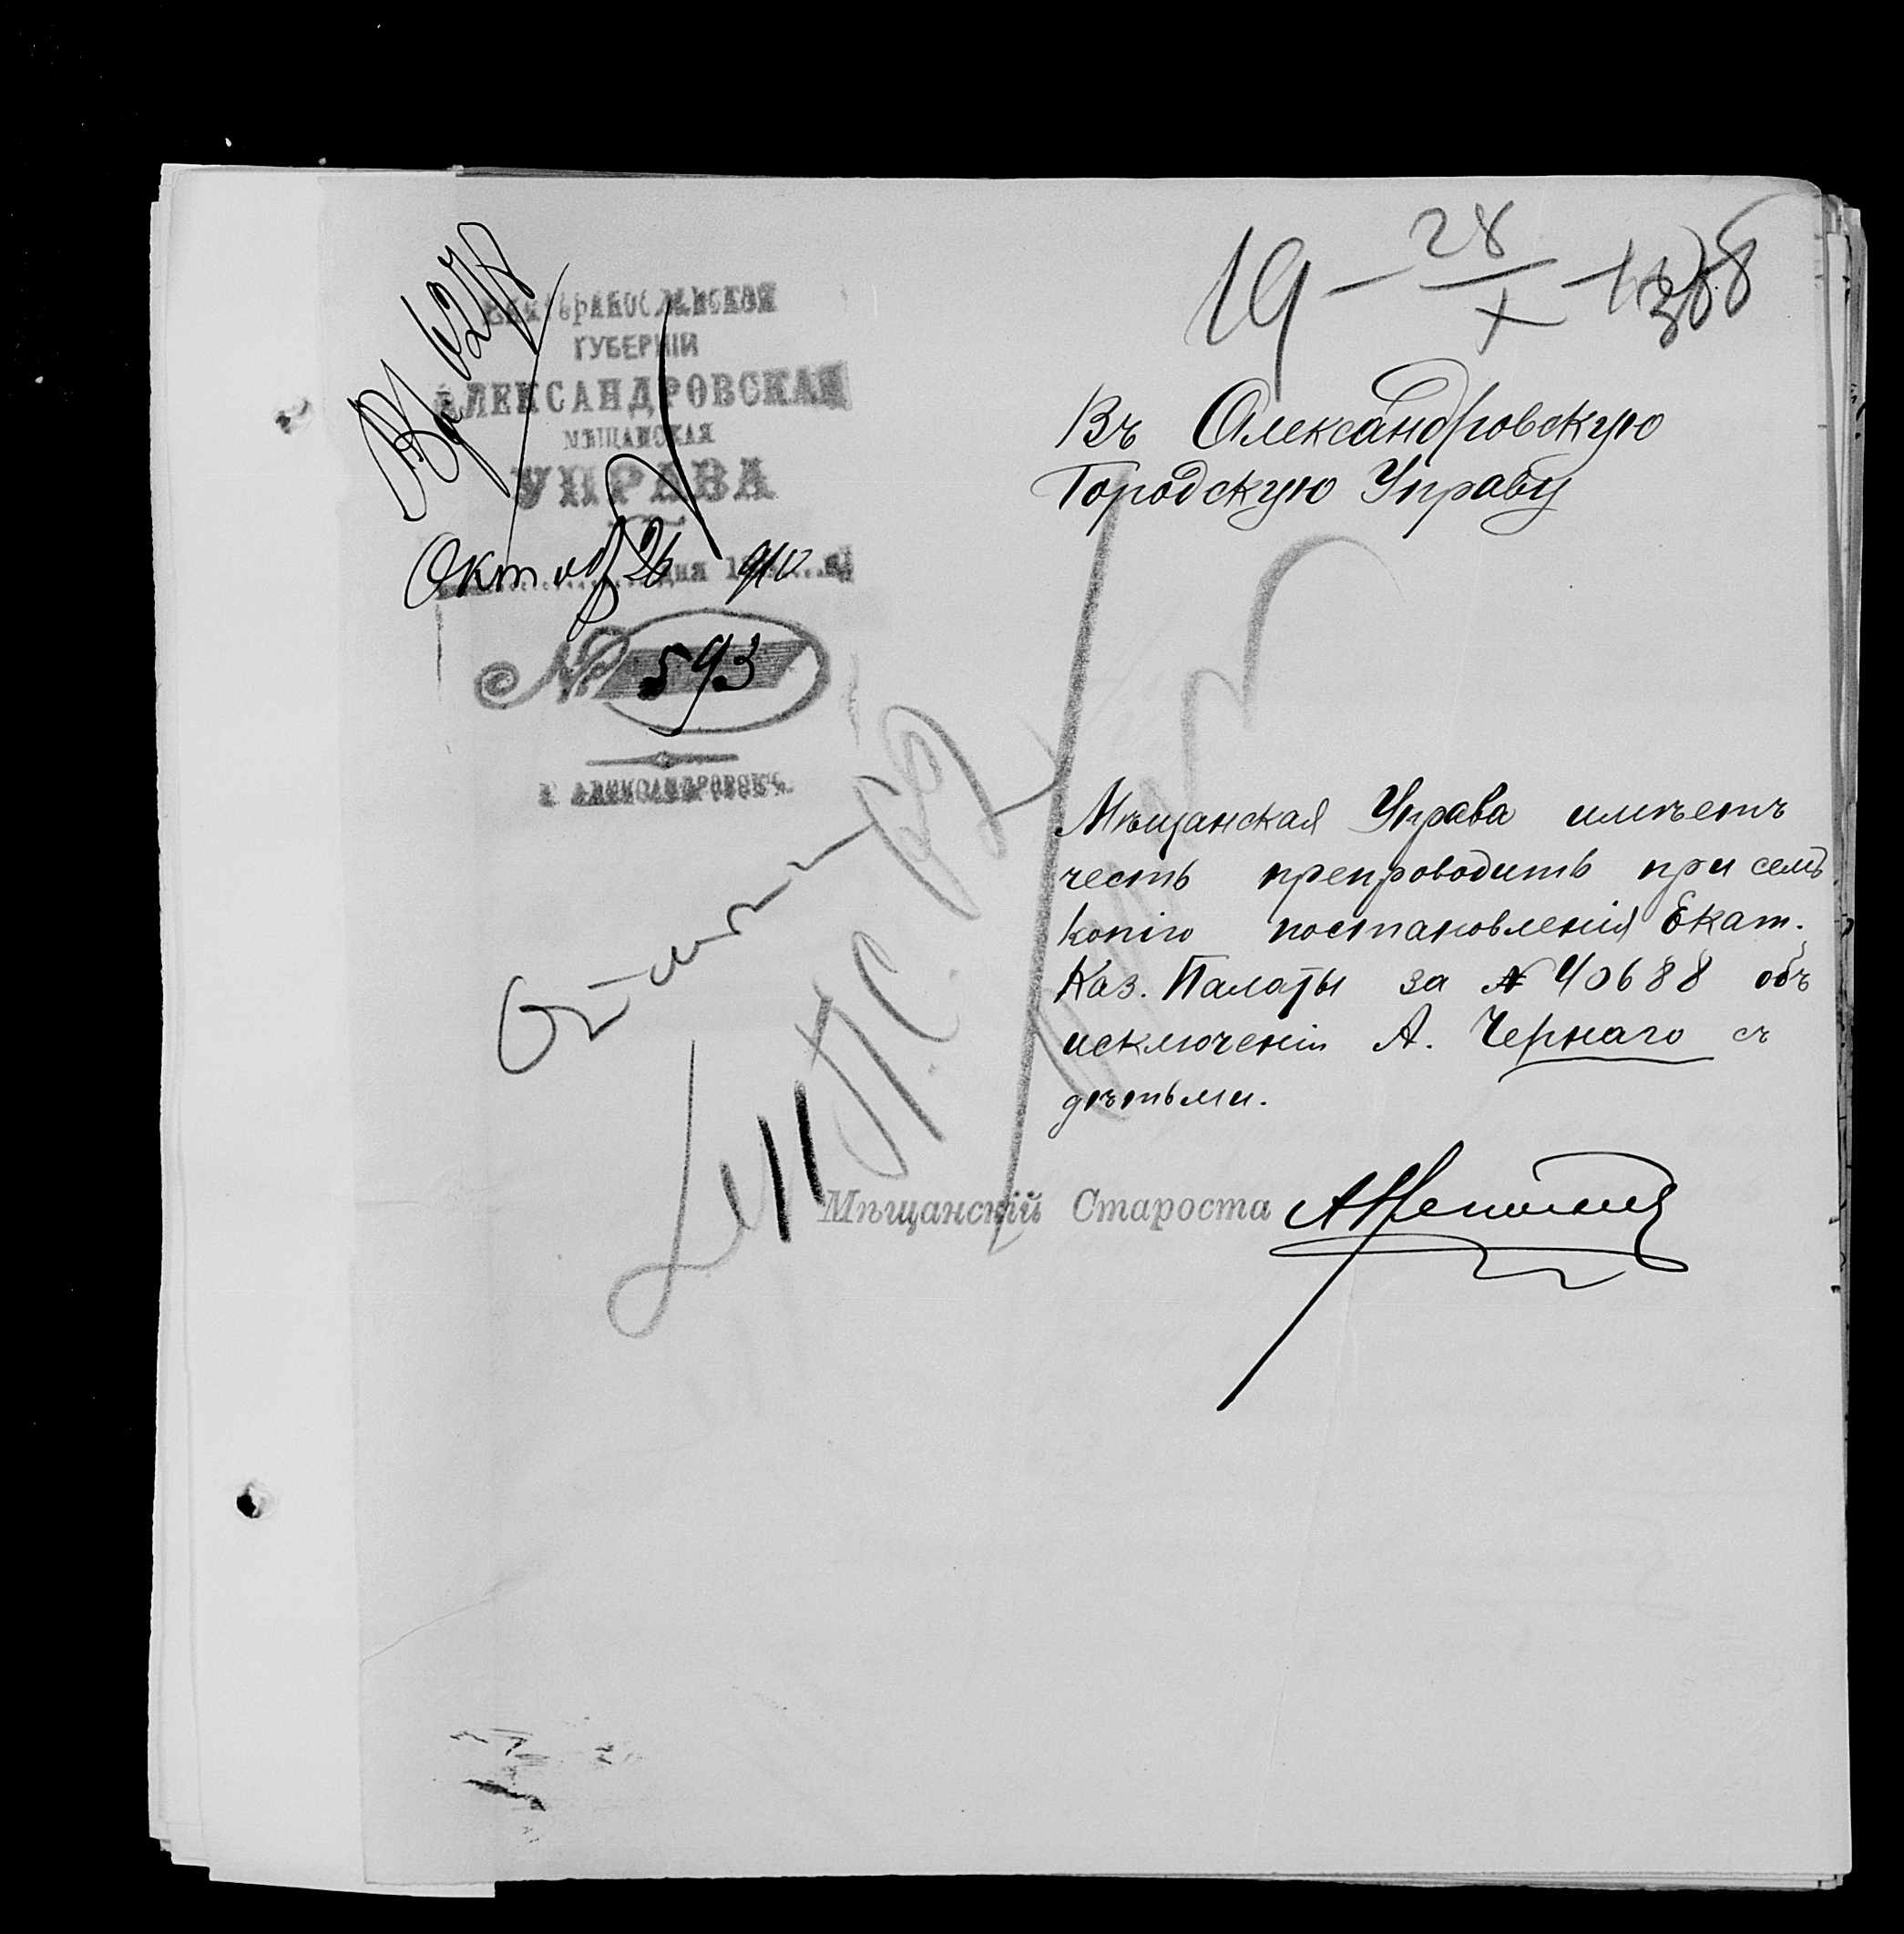 19 - 28/X - 1
388
ЕКАТЕРИНОСЛАВСКОЙ
ГУБЕРНІИ
АЛЕКСАНДРОВСКАЯ
МѢЩАНСКАЯ
УПРАВА
Октября 26 дня 1910 г.
№ 593
г. АЛЕКСАНДРОВСКЪ.
Въ Александровскую
Городскую Управу
Мѣщанская Управа имѣетъ
честь препроводить при семъ
копію постановленія Екат.
Каз. Палаты за № 40688 объ
исключеніи А. Чернаго съ
дѣтьми.
Мѣщанскій Староста